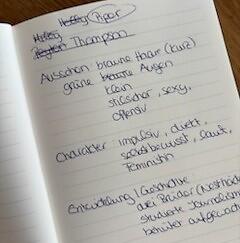 Piper
Thompson
Aussehen: braune Haare (kurz)
grüne braune Augen
klein
stilsicher, sexy,
offensiv
Charakter: impulsiv, direkt,
selbstbewusst, laut,
Feministin
Entwicklung / Geschichte
drei Brüder
studierte Journalismus
behütet aufgewachsen